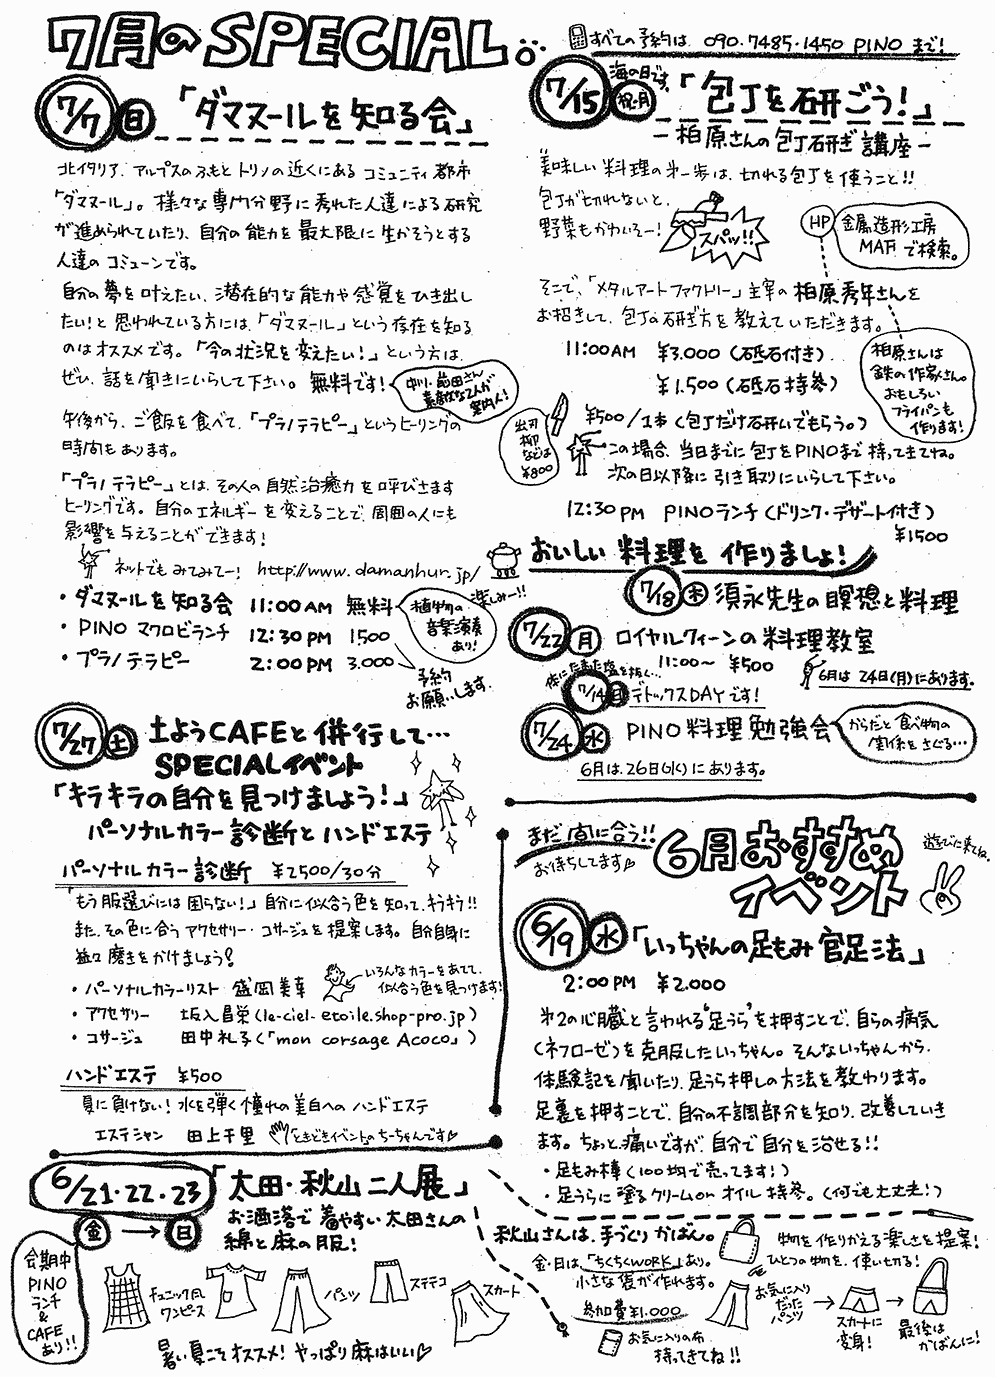 7月のSPECIAL。
すべての予約は 090・7485・1450 PINO まで!
7/7 日 「ダマヌールを知る会」
北イタリア、アルプスのふもとトリノの近くにあるコミュニティ都市
「ダマヌール」。様々な専門分野に秀れた人達による研究
が進められていたり、自分の能力を最大限に生かそうとする
人達のコミューンです。
自分の夢を叶えたい、潜在的な能力や感覚をひき出し
たい!と思われている方には、「ダマヌール」という存在を知る
のはオススメです。「今の状況を変えたい!」という方は、
ぜひ、話を聞きにいらして下さい。無料です!
中川・前田さん
素敵な2人が
案内人!
午後から、ご飯を食べて、「プラノテラピー」というヒーリングの
時間もあります。
「プラノテラピー」とは、その人の自然治癒力を呼びさます
ヒーリングです。自分のエネルギーを変えることで、周囲の人にも
影響を与えることができます!
ネットでもみてみてー! http://www.damanhur.jp/
・ダマヌールを知る会 11:00AM 無料
・PINOマクロビランチ 12:30PM 1500
・プラノテラピー 2:00PM 3.000
楽しみー!!
植物の
音楽演奏
あり!
予約
お願いします.
7/27 土 土ようCAFEと併行して…
SPECIALイベント
「キラキラの自分を見つけましょう!」
パーソナルカラー診断とハンドエステ
パーソナルカラー診断 ¥2500/30分
「もう服選びには困らない!」自分に似合う色を知って、キラキラ!!
また、その色に合うアクセサリー・コサージュを提案します。自分自身に
益々磨きをかけましょう!
・パーソナルカラーリスト 盛岡美幸
いろんなカラーをあてて、
似合う色を見つけます!
・アクセサリー 坂入昌栄(le-ciel-etoile.shop-pro.jp)
・コサージュ 田中礼子(「mon corsage Acoco」)
ハンドエステ ¥500
夏に負けない!水を弾く憧れの美白へのハンドエステ
エステシャン 田上千里 「ときどきイベント」のちーちゃんです♡
7/15 祝・月 海の日です。
「包丁を研ごう!」
-柏原さんの包丁研ぎ講座-
美味しい料理の第一歩は、切れる包丁を使うこと!!
包丁が切れないと、
野菜もかわいそー!
スパッ!!
HP 金属造形工房
MAFで検索。
そこで、「メタルアートファクトリー」主宰の柏原秀年さんを
お招きして、包丁の研ぎ方を教えていただきます。
柏原さんは
鉄の作家さん。
おもしろい
フライパンも
作ります!
11:00AM ¥3.000(砥石付き)
¥1.500(砥石持参)
¥500/1本(包丁だけ研いでもらう。)
出刃
柳
などは
¥800
この場合、当日までに包丁をPINOまで持ってきてね。
次の日以降に引き取りにいらして下さい。
12:30PM PINOランチ(ドリンク・デザート付き)
¥1500
おいしい料理を作りましょ!
7/18 木 須永先生の瞑想と料理
7/22 月 ロイヤルクィーンの料理教室
11:00~ ¥500
6月は24日(月)にあります。
体にたまった塩を抜く…
7/14 日 デトックスDAYです!
7/24 水 PINO料理勉強会
からだと食べ物の
関係をさぐる…
6月は26日(水)にあります。
まだ間に合う!!
お待ちしてます♡
6月おすすめ
イベント
遊びに来てね。
6/19 水 「いっちゃんの足もみ官足法」
2:00PM ¥2.000
第2の心臓と言われる“足うら”を押すことで、自らの病気
(ネフローゼ)を克服したいっちゃん。そんないっちゃんから、
体験記を聞いたり、足うら押しの方法を教わります。
足裏を押すことで、自分の不調部分を知り、改善していき
ます。ちょっと痛いですが、自分で自分を治せる!!
・足もみ棒(100均で売ってます!)
・足うらに塗るクリーム or オイル持参。(何でも大丈夫!)
6/21・22・23 「太田・秋山二人展」
金→日
お洒落で着やすい太田さんの
綿と麻の服!
会期中
PINO
ランチ
&
CAFE
あり!!
チュニック風
ワンピース
パンツ
ステテコ
スカート
暑い夏こそオススメ!やっぱり麻はいい♡
秋山さんは、手づくりかばん。
金・日は、「ちくちくWORK」あり。
小さな袋が作れます。
参加費¥1.000
お気に入りの布
持ってきてね!!
物を作りかえる楽しさを提案!
ひとつの物を、使いきる!
お気に入り
だった
パンツ
→
スカートに
変身!
→
最後は
かばんに!